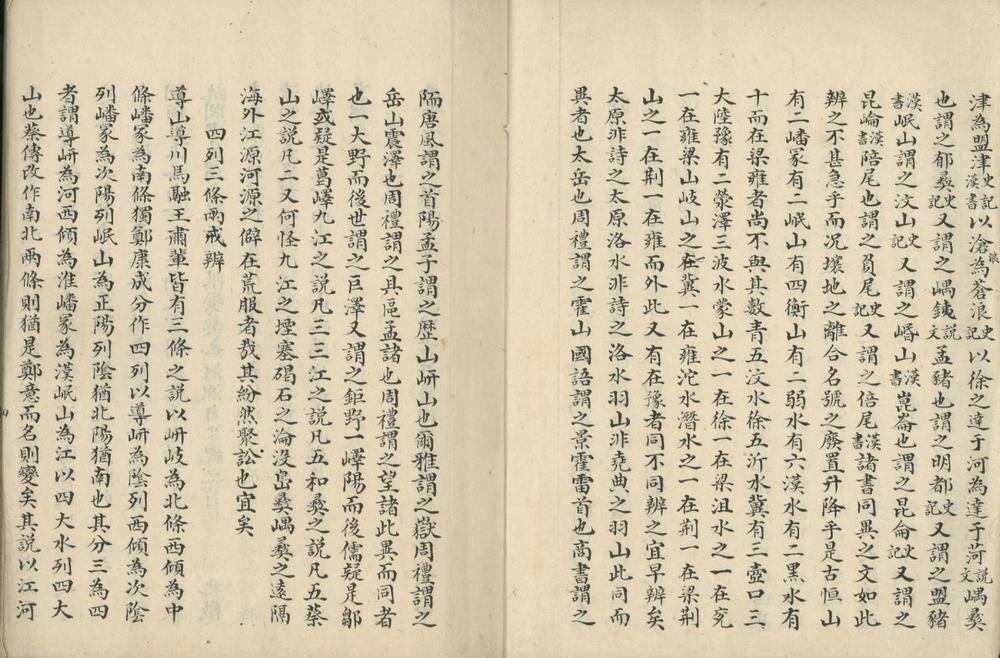 津為盟津史記漢書以滄浪為蒼浪史記以徐之達于河為達于菏說文嵎彝
也謂之郁彝史記又謂之嵎銕說文孟豬也謂之明都史記又謂之盟豬
漢書岷山謂之汶山史記又謂之㟭山漢書崑崙也謂之昆侖史記又謂之
昆崘漢書陪尾也謂之負尾史記又謂之倍尾漢書諸書同異之文如此
辨之不甚急乎而况壤地之離合名號之廢置升降乎是古恒山
有二嶓冢有二岷山有四衡山有二弱水有六漢水有二黑水有
十而在梁雍者尚不與其數青五汶水徐五沂水冀有三壺口三
大陸豫有二滎澤三波水蒙山之一在徐一在梁沮水之一在兖
一在雍梁山岐山之在冀一在雍沱水潛水之一在荆一在梁荆
山之一在荆一在雍而外此又有在豫者同不同辨之宜早辨矣
太原非詩之太原洛水非詩之洛水羽山非堯典之羽山此同而
異者也太岳也周禮謂之霍山國語謂之景霍雷首也髙書謂之
陑唐風謂之首陽孟子謂之歷山岍山也爾雅謂之嶽周禮謂之
岳山震澤也周禮謂之具區孟諸也周禮謂之望諸此異而同者
也一大野而後世謂之巨澤又謂之鉅野一嶧陽而後儒疑是鄒
嶧或疑是葛嶧九江之説凡三三江之説凡五和彝之説凡五蔡
山之説凡二又何怪九江之堙塞碣石之淪没嵒彝嵎彝之遠隔
海外江源河源之僻在荒服者哉其紛然聚訟也宜矣
四列三條兩戒辨
導山導川馬融王肅軰皆有三條之説以岍岐為北條西傾為中
條嶓冢為南條獨鄭康成分作四列以導岍為陰列西傾為次陰
列嶓冢為次陽列岷山為正陽列陰猶北陽猶南也其分三為四
者謂導岍為河西傾為淮嶓冢為漢岷山為江以四大水列四大
山也蔡傳改作南北兩條則猶是鄭意而名則變矣其説以江河